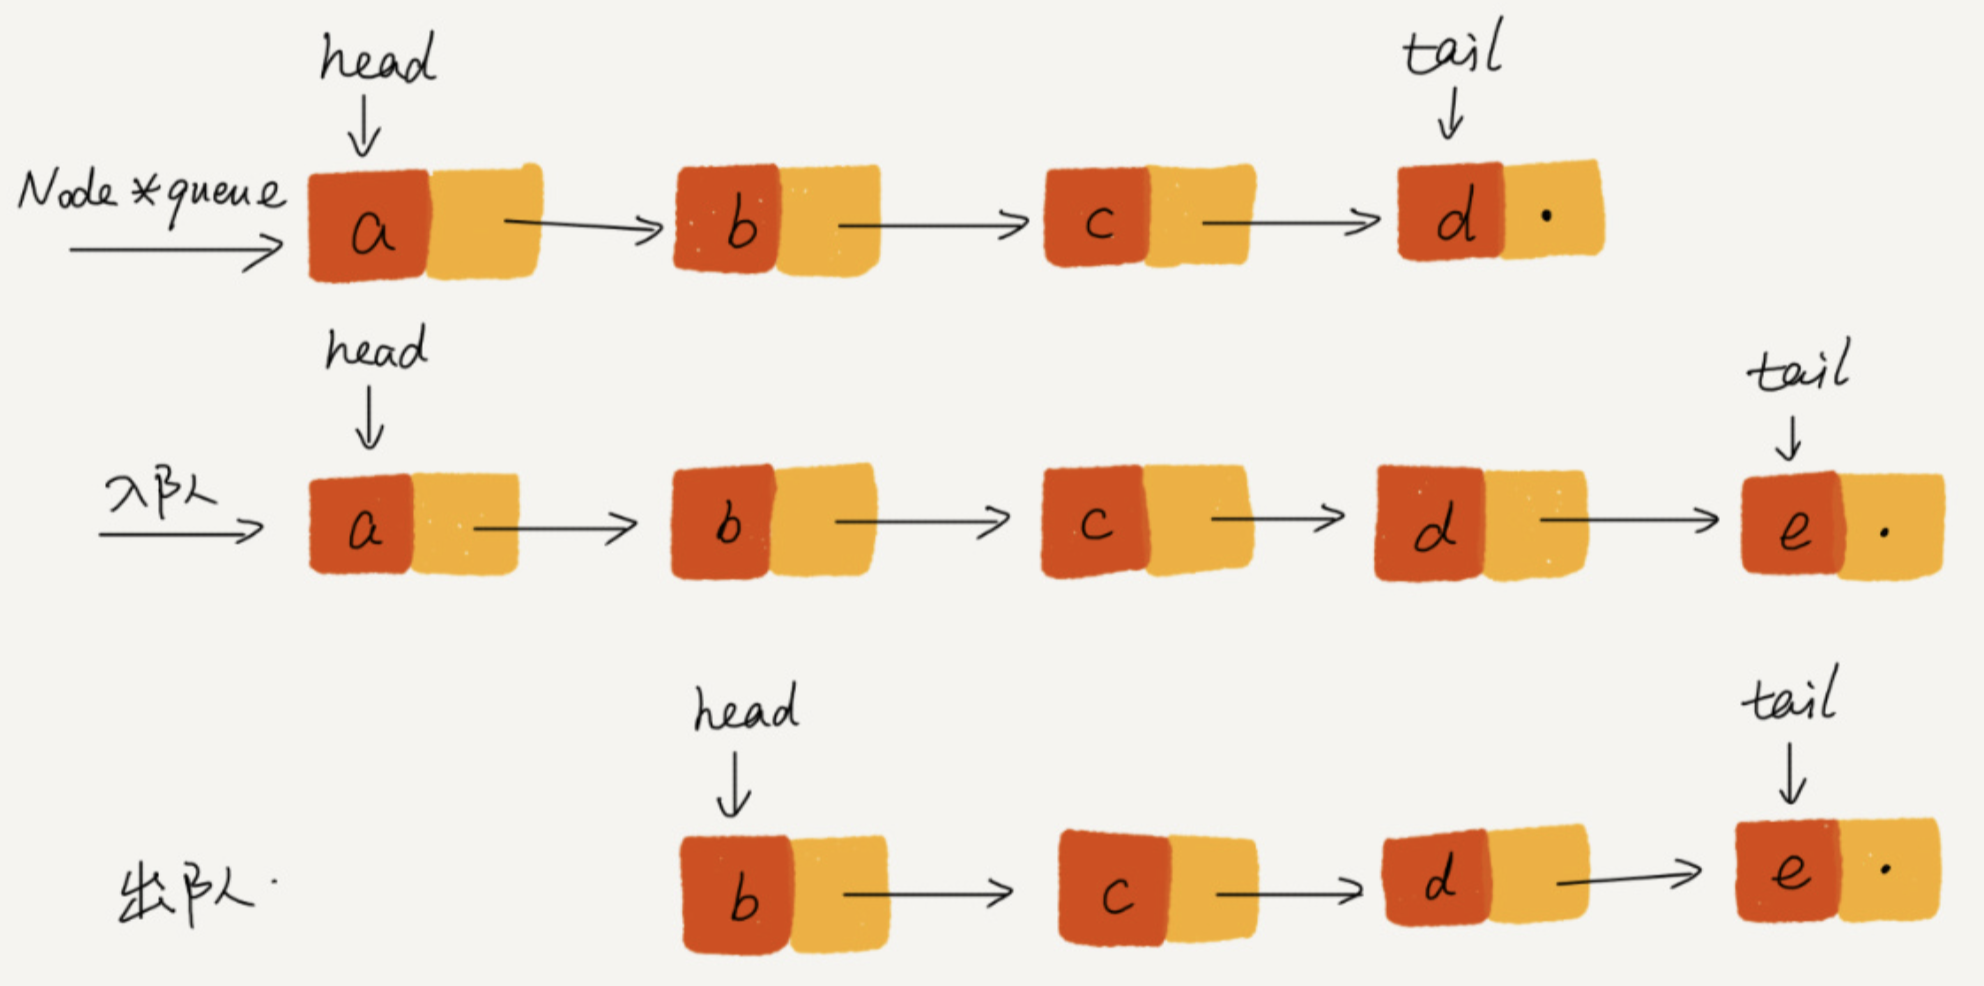 head tail
Node *queue a b c d
head tail
入队 a b c d e
head tail
出队 b c d e